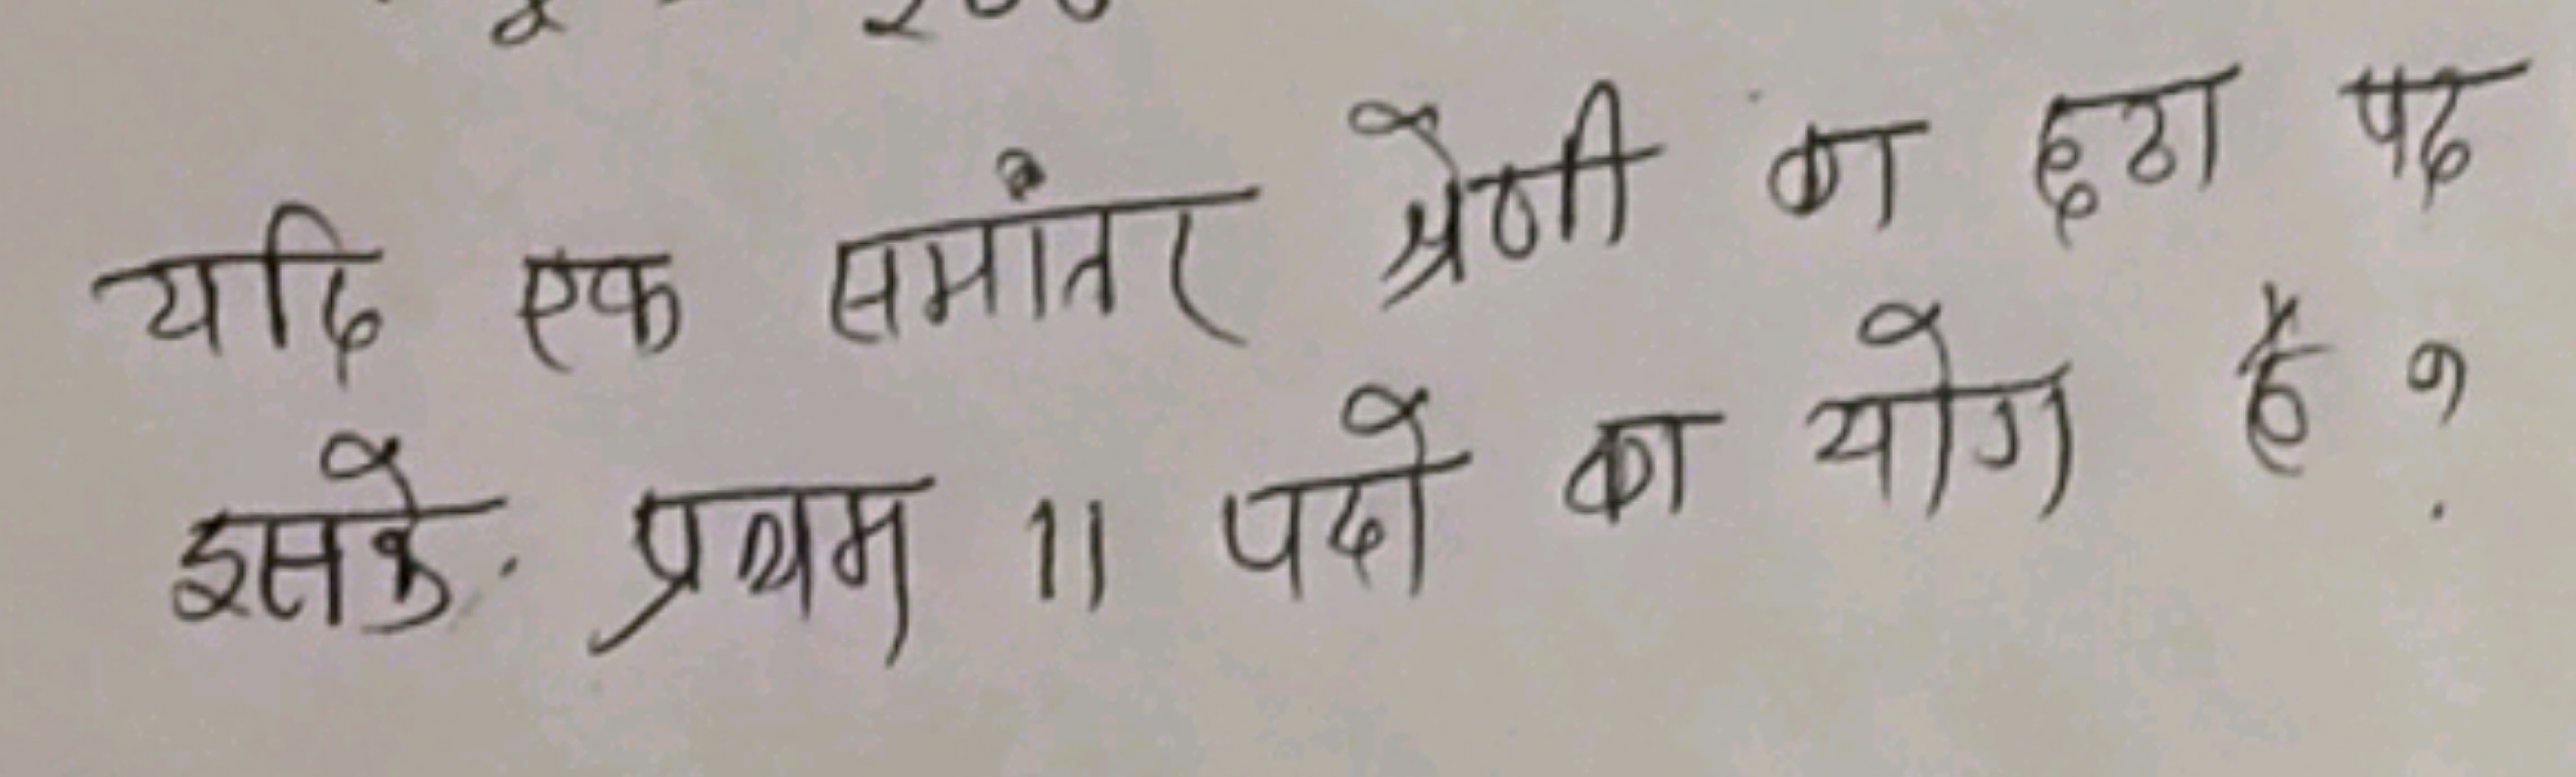 यदि एक समांतर श्रेणी का छठा पद
इसके प्रथम 11 पदो का योग है ?